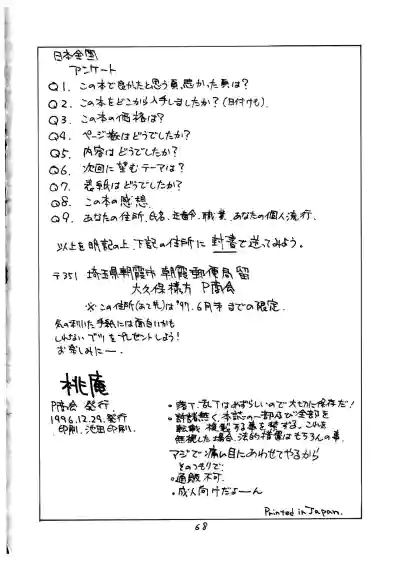 日本全国
アンケート
Q1. この本で良かったと思う頁、悪かった頁は?
Q2. この本をどこから入手しましたか?(日付けも).
Q3. この本の価格は?
Q4. ページ数はどうでしたか?
Q5. 内容はどうでしたか?
Q6. 次回に望むテーマは?
Q7. 表紙はどうでしたか?
Q8. この本の感想.
Q9. あなたの住所、氏名、年齢、職業、あなたの個人流行.
以上を明記の上、下記の住所に 封書で送ってみよう。
〒351 埼玉県朝霞市朝霞郵便局留
大久保様方 P商会
※この住所(あて先)は'97.6月末までの限定.
気の利いた手紙には面白いかも
しれないブツをプレゼントしよう!
お楽しみにー.
桃庵
P商会 発行
1996.12.29.発行
印刷.池田印刷.
・落丁、乱丁はめずらしいので大切に保存だ!
・許諾無く、本誌の一部及び全部を
転載 複製する事を禁ずる。これを
無視した場合、法的措置はもちろんの事.
マジで痛い目にあわせてやるから
そのつもりで.
・通販不可.
・成人向けだよーん
Printed in Japan.
68